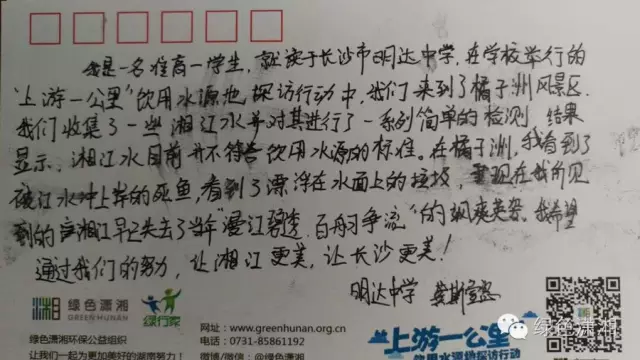 我是一名准高一学生，就读于长沙市明达中学，在学校举行的
“上游一公里”饮用水源地探访行动中，我们来到了橘子洲风景区.
我们收集了一些湘江水并对其进行了一系列简单的检测，结果
显示，湘江水目前并不符合饮用水源的标准。在橘子洲，我看到了
被江水冲上岸的死鱼，看到了漂浮在水面上的垃圾，现在我所见
到的湘江早已失去了当年“漫江碧透，百舸争流”的飒爽英姿。我希望
通过我们的努力，让湘江更美，让长沙更美！
明达中学
湘 绿色潇湘 GREEN HUNAN 绿行家
绿色潇湘环保公益组织
让我们一起为更加美好的湖南努力！
网址：www.greenhunan.org.cn
电话：0731-85861192
微博/微信：@绿色潇湘
上游一公里
饮用水源地探访行动
绿色潇湘